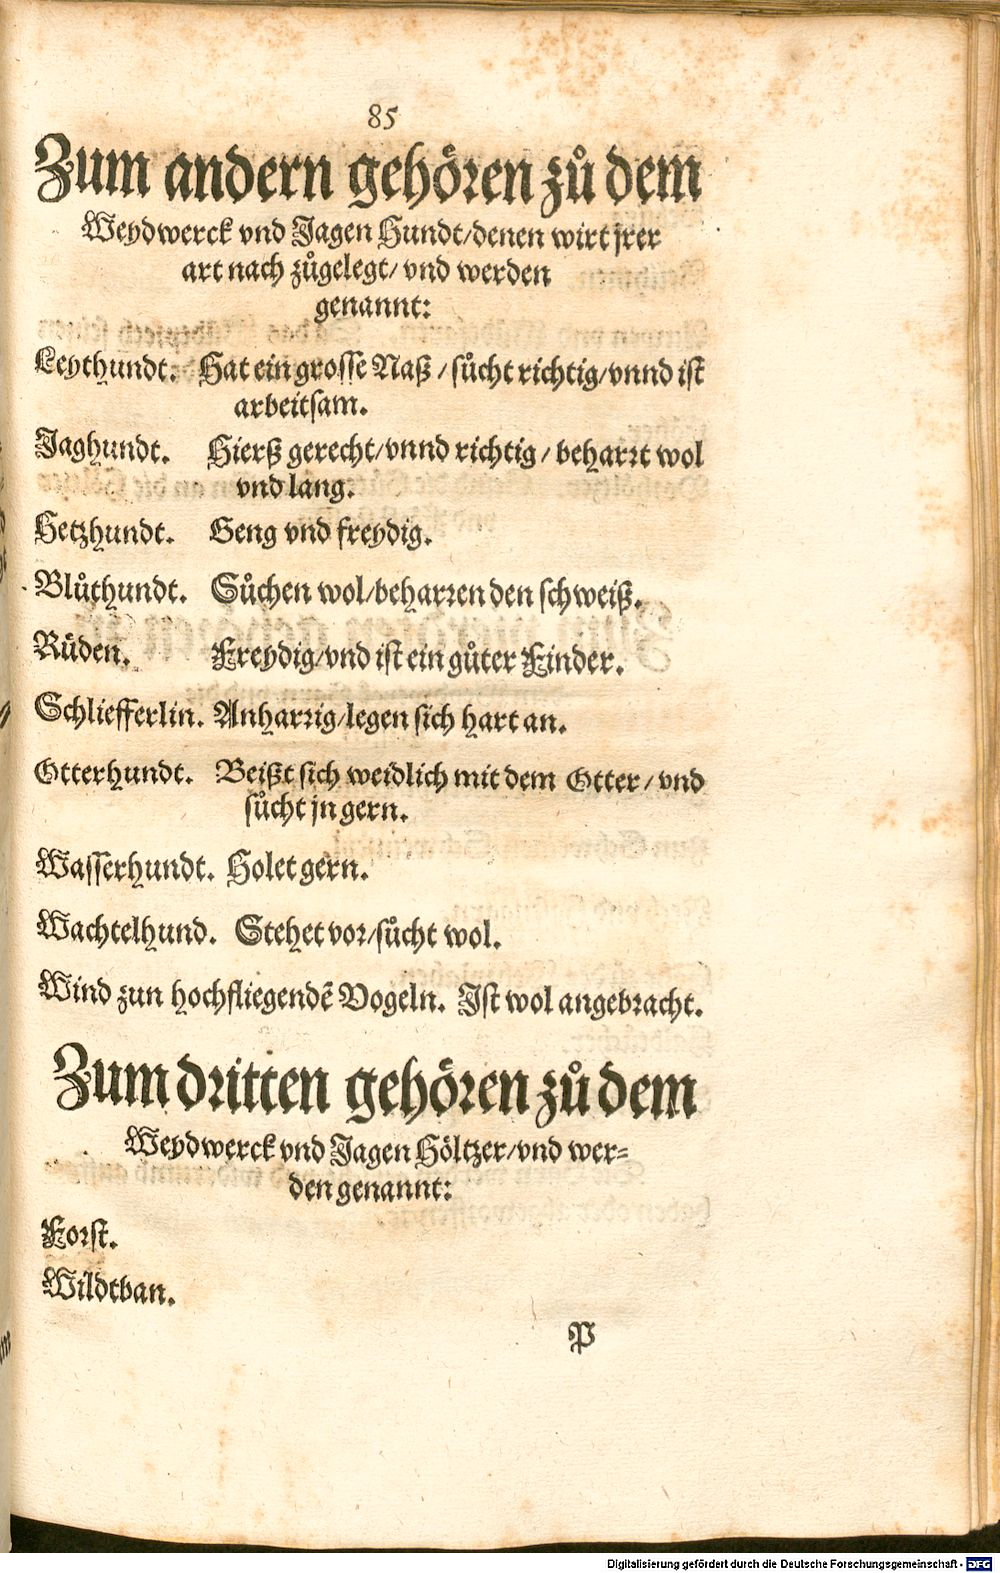 85
Zum andern gehören zů dem
Weydwerck vnd Jagen Hundt/denen wirt jrer
art nach zůgelegt/ vnd werden
genannt:
Leythundt. Hat ein grosse Naß / sůcht richtig/vnnd ist
arbeitsam.
Jaghundt. Hierß gerecht/vnnd richtig / beharrt wol
vnd lang.
Hetzhundt. Geng vnd freydig.
Blůthundt. Sůchen wol/beharren den schweiß.
Rüden. Freydig/vnd ist ein gůter Finder.
Schliefferlin. Anharrig/legen sich hart an.
Otterhundt. Beißt sich weidlich mit dem Otter / vnd
sůcht jn gern.
Wasserhundt. Holet gern.
Wachtelhund. Stehet vor/sůcht wol.
Wind zun hochfliegendẽ Vogeln. Ist wol angebracht.
Zum dritten gehören zů dem
Weydwerck vnd Jagen Höltzer/vnd wer=
den genannt:
Forst.
Wildtban.
P
Digitalisierung gefördert durch die Deutsche Forschungsgemeinschaft - DFG